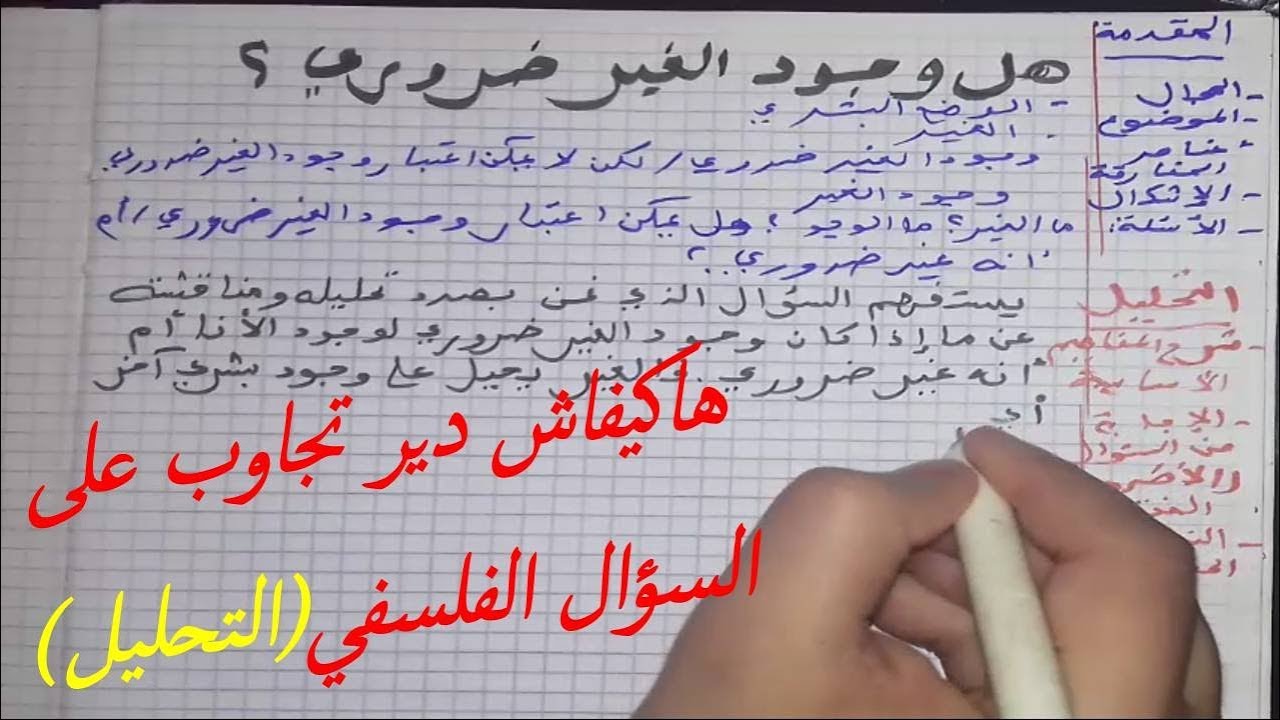 هل وجود الغير ضروري؟
المقدمة
- المجال
- الوضع البشري
- الموضوع
. الغير
عناصر المفارقة
وجود الغير ضروري / لكن لا يمكن اعتبار وجود الغير ضروري
- الإشكال
وجود الغير
- الأسئلة:
ما الغير؟ ما الوجو ؟ هل يمكن اعتبار وجود الغير ضروري / أم
انه غير ضروري..؟
التحليل
- شرح المفاهيم
الأساسية
- الإجابة
عن السؤال
يستفهم السؤال الذي نحن بصدد تحليله ومناقشته
عن ما إذا كان وجود الغير ضروري لوجود الأنا أم
أنه غير ضروري. فالغير يحيل على وجود بشري آخر
أي
هاكيفاش دير تجاوب على
السؤال الفلسفي (التحليل)